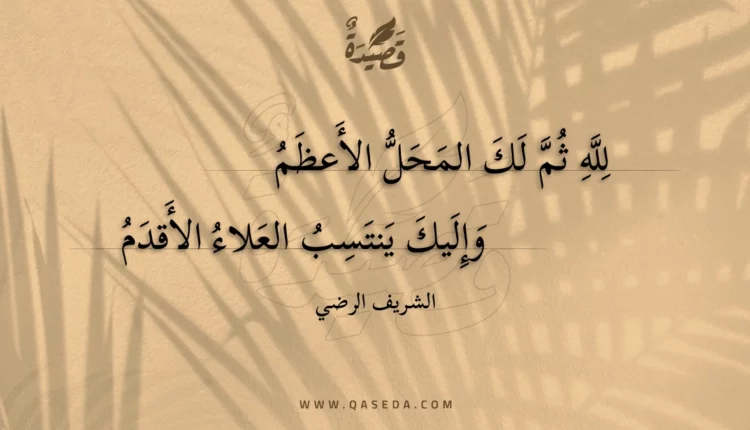 قَصِيْدَةٌ
لِلَّهِ ثُمَّ لَكَ المَحَلُّ الأَعظَمُ
وَإِلَيكَ يَنتَسِبُ العَلاءُ الأَقدَمُ
الشريف الرضي
WWW.QASEDA.COM